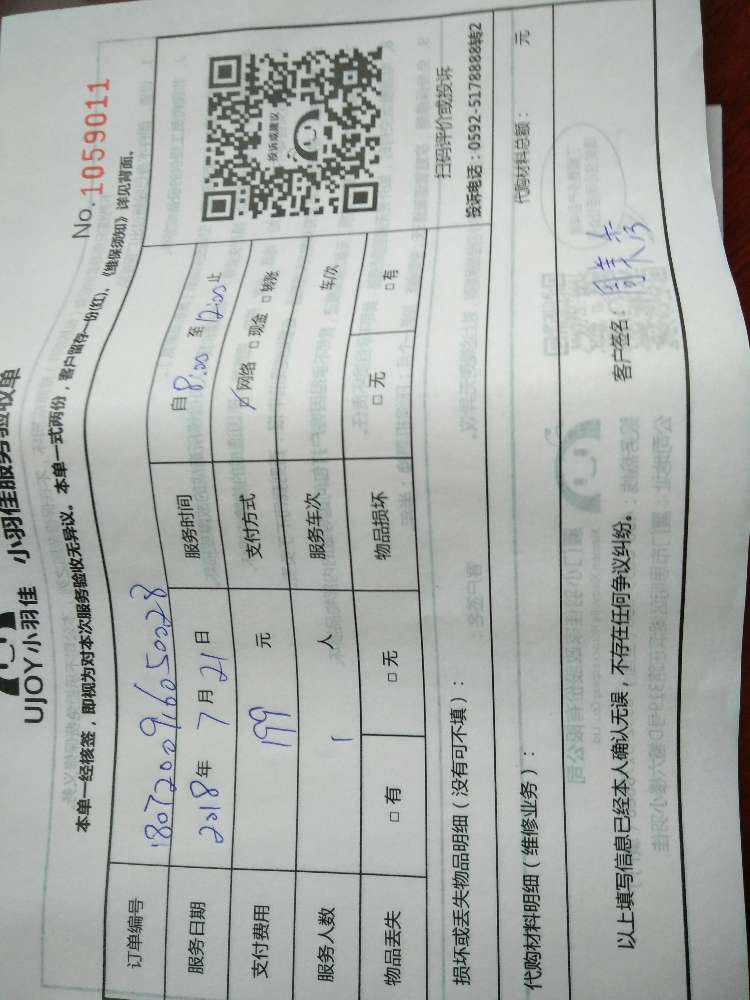 小羽佳服务验收单
UJOY小羽佳
No. 1059011
本单一经核签，即视为对本次服务验收无异议。本单一式两份，客户留存一份(红)。《维保须知》详见背面。
订单编号 180720091605002​8
服务日期 2018年 7月 21日 服务时间 自 8:00 至 12:00 止
支付费用 199 元 支付方式 ☑网络 □现金 □转账
服务人数 1 人 服务车次 车/次
物品丢失 □有 □无 物品损坏 □无 □有
投诉或建议
扫码评价或投诉
投诉电话：0592-5178888转2
损坏或丢失物品明细（没有可不填）：
代购材料明细（维修业务）： 代购材料总额： 元
以上填写信息已经本人确认无误，不存在任何争议纠纷。 客户签名：